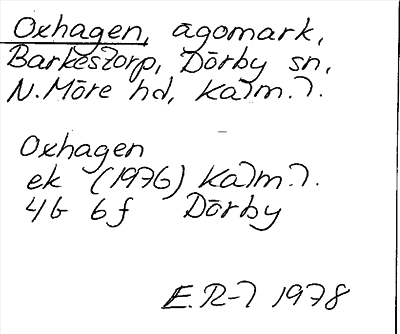 Oxhagen, ägomark,
Barkestorp, Dörby sn,
N. Möre hd, Kalm. l.
Oxhagen
ek (1976) Kalm. l.
4G 6f Dörby
E. R-l 1978